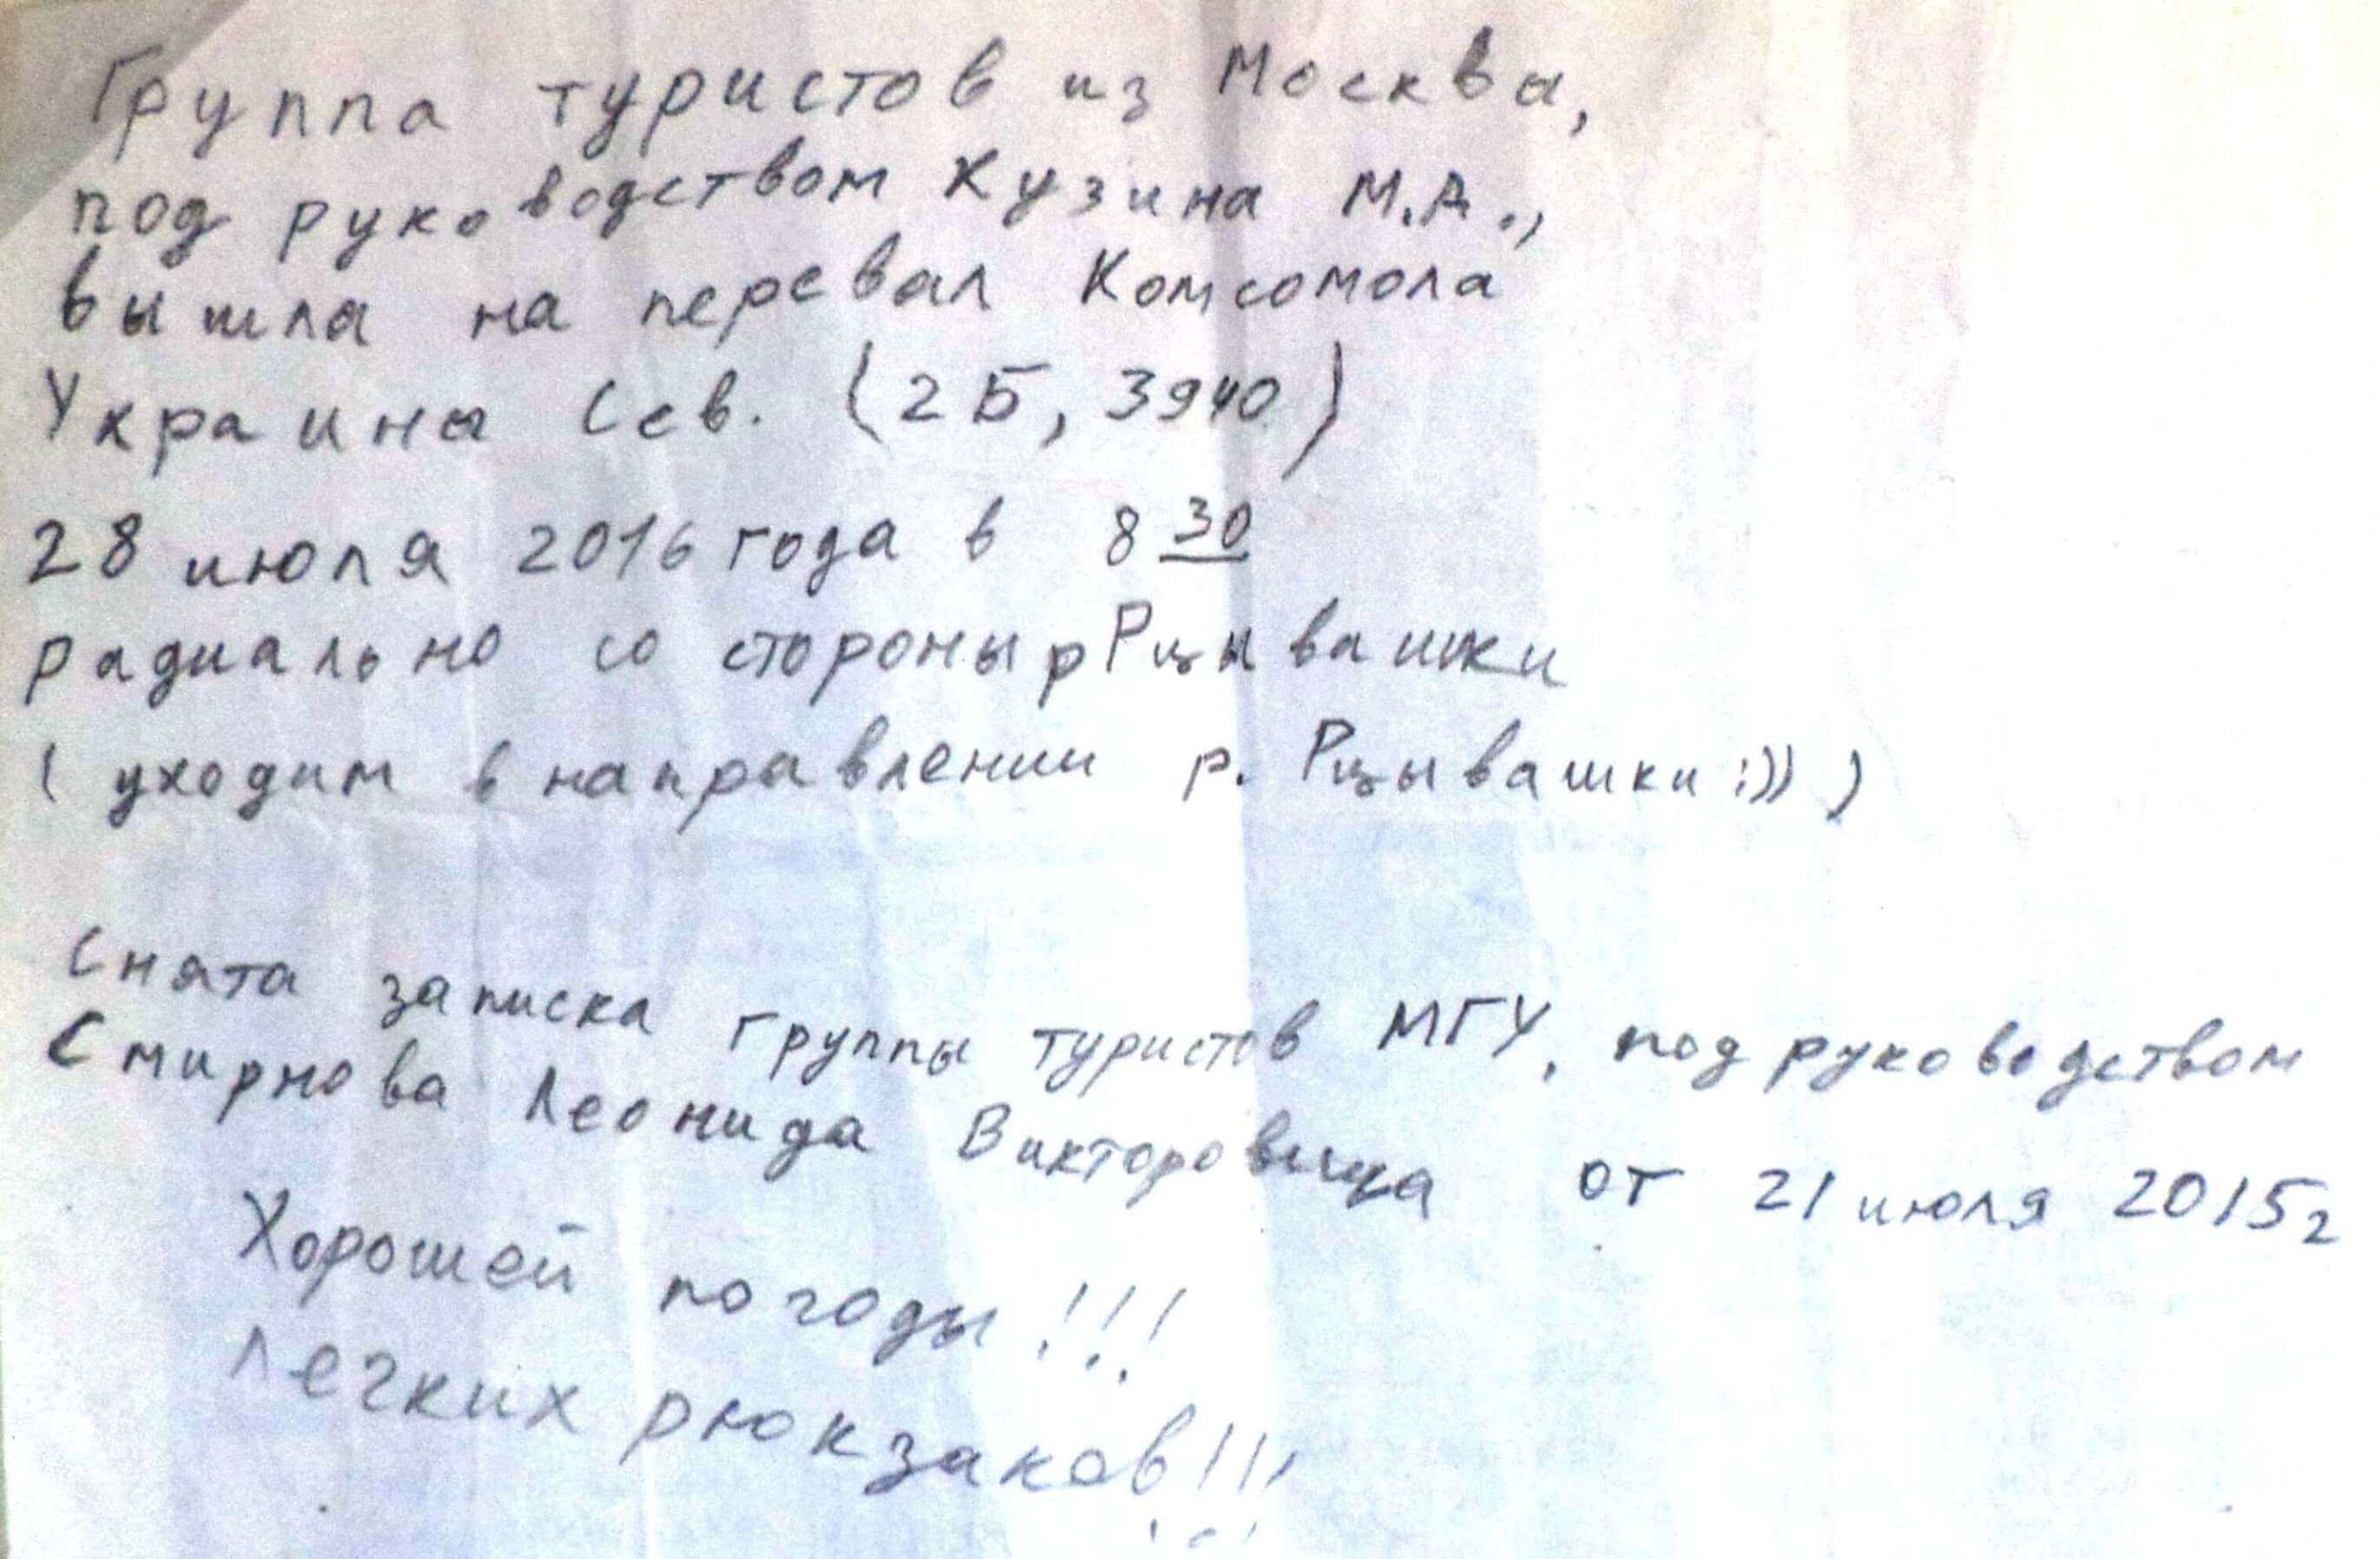 Группа туристов из Москва,
под руководством Кузина М.А.,
вышла на перевал Комсомола
Украины Сев. (2Б, 3940)
28 июля 2016 года в 8 30
радиально со стороны р Рцывашки
( уходим в направлении р. Рцывашки :)) )
Снята записка группы туристов МГУ, под руководством
Смирнова Леонида Викторовича от 21 июля 2015г
Хорошей погоды!!!
Легких рюкзаков!!!